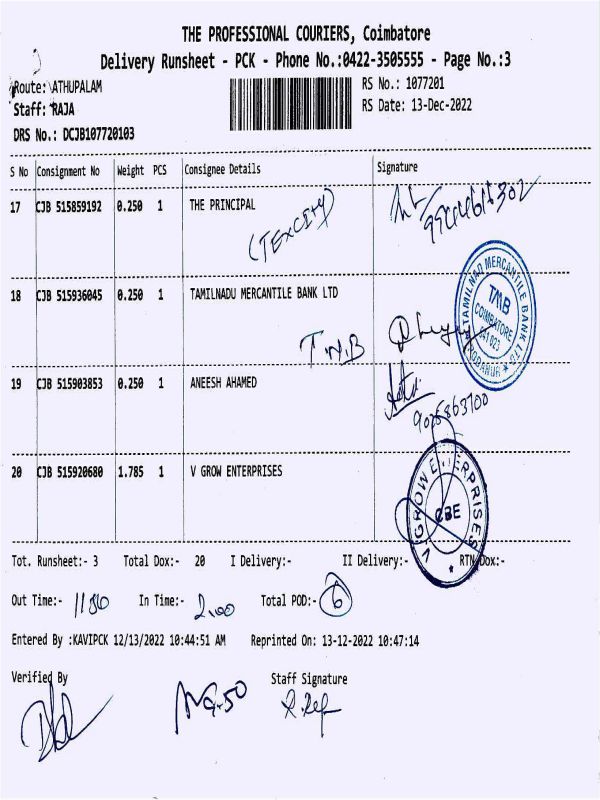 THE PROFESSIONAL COURIERS, Coimbatore
Delivery Runsheet - PCK - Phone No.:0422-3505555 - Page No.:3
Route: ATHUPALAM
RS No.: 1077201
Staff: RAJA
RS Date: 13-Dec-2022
DRS No.: DCJB107720103
S No Consignment No Weight PCS Consignee Details Signature
17 CJB 515859192 0.250 1 THE PRINCIPAL
18 CJB 515936045 0.250 1 TAMILNADU MERCANTILE BANK LTD
T.M.B
TAMILNAD MERCANTILE BANK LTD
TMB
COIMBATORE
641 023
19 CJB 515903853 0.250 1 ANEESH AHAMED
20 CJB 515920680 1.785 1 V GROW ENTERPRISES
V GROW ENTERPRISES
CBE
Tot. Runsheet:- 3 Total Dox:- 20 I Delivery:- II Delivery:- RTN Dox:-
Out Time:- In Time:- 2.00 Total POD:- 6
Entered By :KAVIPCK 12/13/2022 10:44:51 AM Reprinted On: 13-12-2022 10:47:14
Verified By Staff Signature